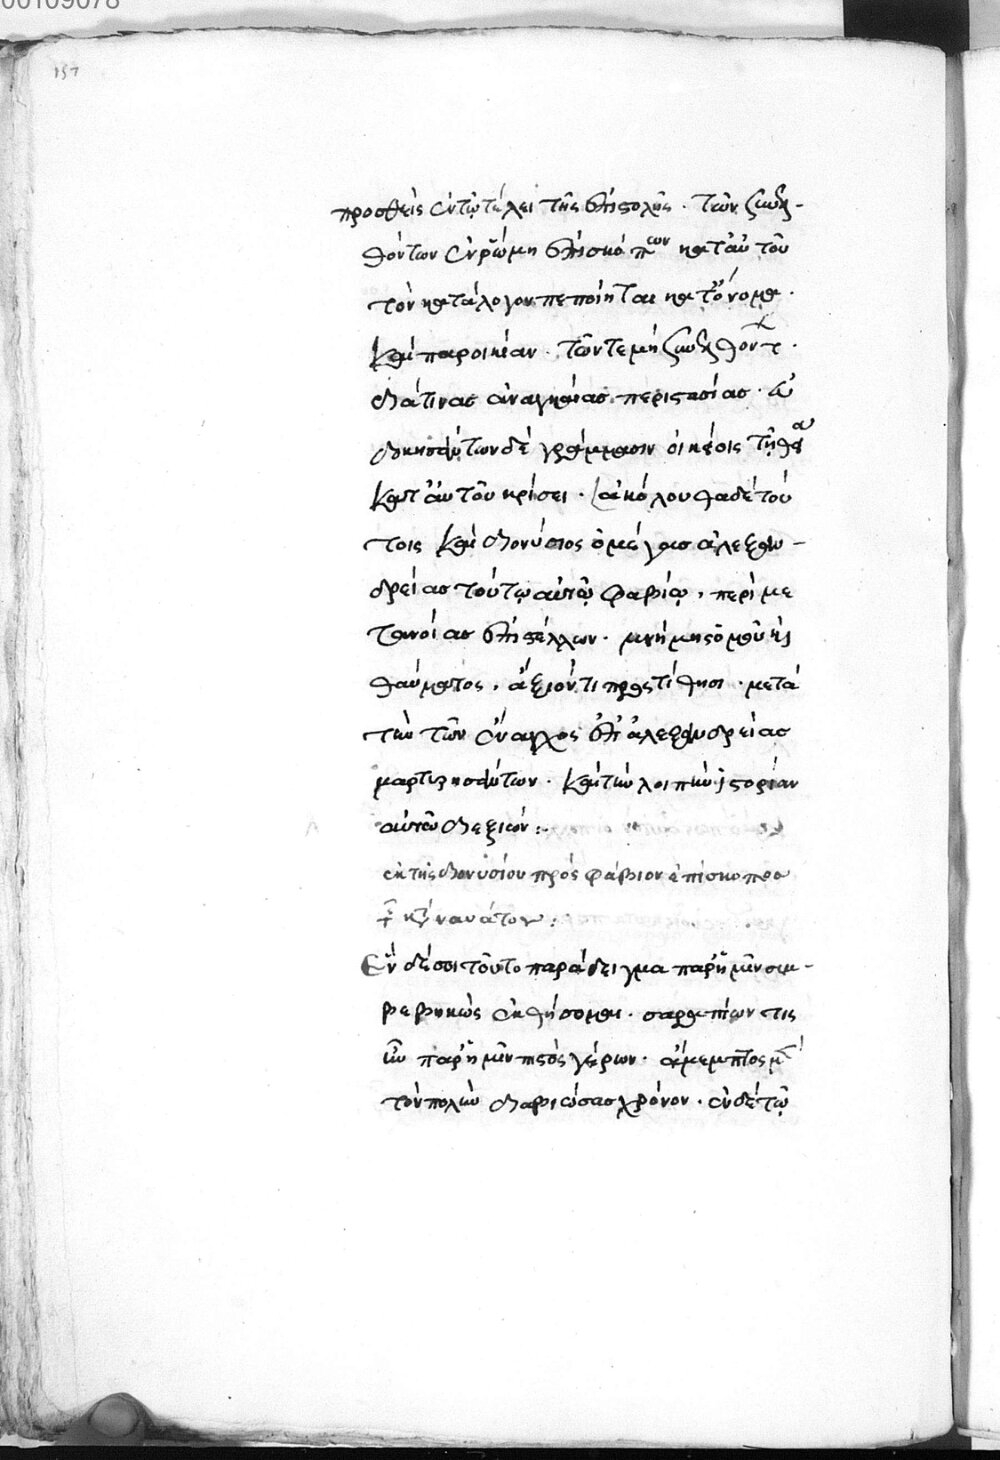 00109078
157
προσθεὶς ἐν τῷ τέλει τῆς ἐπιστολῆς · τῶν συνελ-
θόντων ἐν ῥώμη ἐπισκόπων κατ' αὐτοῦ
τὸν κατάλογον πεποίηται κατ' ὄνομα ·
καὶ παροικίαν · τῶν τε μὴ συνελθόντ ·
διά τινας ἀναγκαίας περιστασίας · εὐ
δοκησάντων δὲ γράμμασιν οἰκείοις τῆ θεία
κατ' αὐτοῦ κρίσει · ἀκόλουθα δὲ τού
τοις καὶ διονύσιος ὁ μέγας ἀλεξαν-
δρείας τούτῳ αὐτῷ φαβίῳ, περὶ με
τανοίας ἐπιστέλλων · μνήμης ὁμοῦ κ
θαύματος, ἄξιόν τι προστίθησι · μετὰ
τὴν τῶν ἔναγχος ἐπ' ἀλεξανδρείας
μαρτυρησάντων · καὶ τὴν λοιπὴν ἱστορίαν
αὐτῶ διεξιών :
ἐκ τῆς διονυσίου πρὸς φάβιον ἐπίσκοπον
ναυάτου :
Ἓν δέ σοι τοῦτο παράδειγμα παρ' ἡμῖν συμ-
βεβηκὼς ἐκθήσομαι · σαραπίων τις
ἦν παρ' ἡμῖν πιστὸς γέρων · ἀμέμπτως μ
τὸν πολὺν διαβιώσας χρόνον · ἐν δὲ τῷ